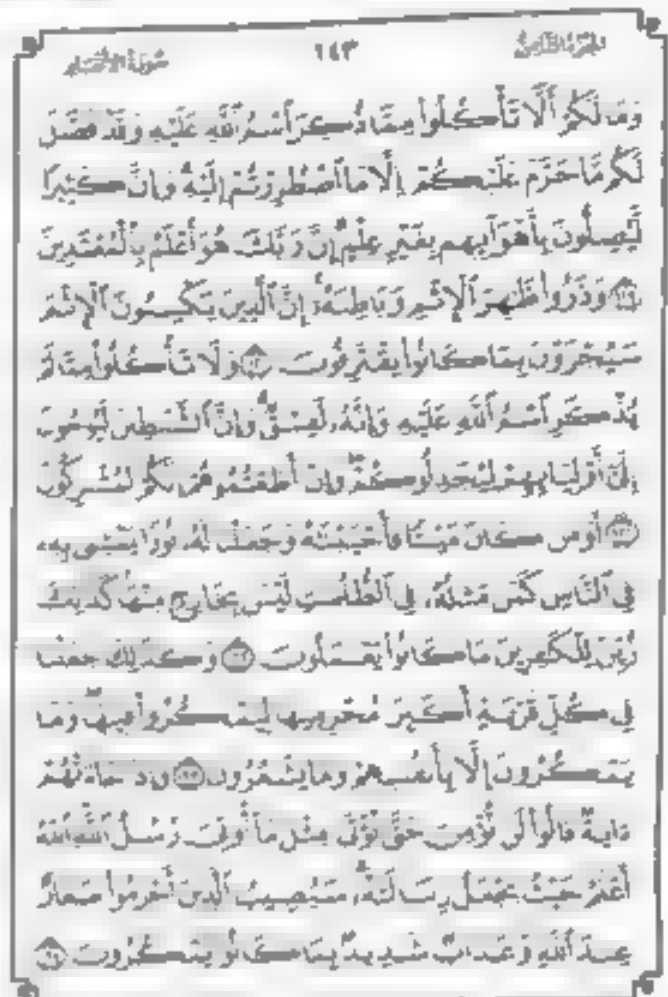 الجزء الثامن ١٤٣ سورة الأنعام
وَمَا لَكُمْ أَلَّا تَأْكُلُوا۟ مِمَّا ذُكِرَ ٱسْمُ ٱللَّهِ عَلَيْهِ وَقَدْ فَصَّلَ
لَكُم مَّا حَرَّمَ عَلَيْكُمْ إِلَّا مَا ٱضْطُرِرْتُمْ إِلَيْهِ وَإِنَّ كَثِيرًا
لَّيُضِلُّونَ بِأَهْوَآئِهِم بِغَيْرِ عِلْمٍ إِنَّ رَبَّكَ هُوَ أَعْلَمُ بِٱلْمُعْتَدِينَ
١١٩ وَذَرُوا۟ ظَٰهِرَ ٱلْإِثْمِ وَبَاطِنَهُۥٓ إِنَّ ٱلَّذِينَ يَكْسِبُونَ ٱلْإِثْمَ
سَيُجْزَوْنَ بِمَا كَانُوا۟ يَقْتَرِفُونَ ١٢٠ وَلَا تَأْكُلُوا۟ مِمَّا لَمْ
يُذْكَرِ ٱسْمُ ٱللَّهِ عَلَيْهِ وَإِنَّهُۥ لَفِسْقٌ وَإِنَّ ٱلشَّيَٰطِينَ لَيُوحُونَ
إِلَىٰٓ أَوْلِيَآئِهِمْ لِيُجَٰدِلُوكُمْ وَإِنْ أَطَعْتُمُوهُمْ إِنَّكُمْ لَمُشْرِكُونَ
١٢١ أَوَمَن كَانَ مَيْتًا فَأَحْيَيْنَٰهُ وَجَعَلْنَا لَهُۥ نُورًا يَمْشِى بِهِۦ
فِى ٱلنَّاسِ كَمَن مَّثَلُهُۥ فِى ٱلظُّلُمَٰتِ لَيْسَ بِخَارِجٍ مِّنْهَا كَذَٰلِكَ
زُيِّنَ لِلْكَٰفِرِينَ مَا كَانُوا۟ يَعْمَلُونَ ١٢٢ وَكَذَٰلِكَ جَعَلْنَا
فِى كُلِّ قَرْيَةٍ أَكَٰبِرَ مُجْرِمِيهَا لِيَمْكُرُوا۟ فِيهَا وَمَا
يَمْكُرُونَ إِلَّا بِأَنفُسِهِمْ وَمَا يَشْعُرُونَ ١٢٣ وَإِذَا جَآءَتْهُمْ
ءَايَةٌ قَالُوا۟ لَن نُّؤْمِنَ حَتَّىٰ نُؤْتَىٰ مِثْلَ مَآ أُوتِىَ رُسُلُ ٱللَّهِ ٱللَّهُ
أَعْلَمُ حَيْثُ يَجْعَلُ رِسَالَتَهُۥ سَيُصِيبُ ٱلَّذِينَ أَجْرَمُوا۟ صَغَارٌ
عِندَ ٱللَّهِ وَعَذَابٌ شَدِيدٌۢ بِمَا كَانُوا۟ يَمْكُرُونَ ١٢٤